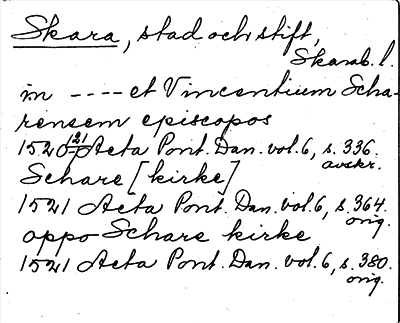 Skara, stad och stift,
Skarab. l.
in ---- et Vincentium Scha-
rensem episcopos
1520-21 Acta Pont. Dan. vol. 6, s. 336.
avskr.
Schare [kirke]
1521 Acta Pont. Dan. vol. 6, s. 364.
orig.
oppo Schare kirke
1521 Acta Pont. Dan. vol. 6, s. 380.
orig.